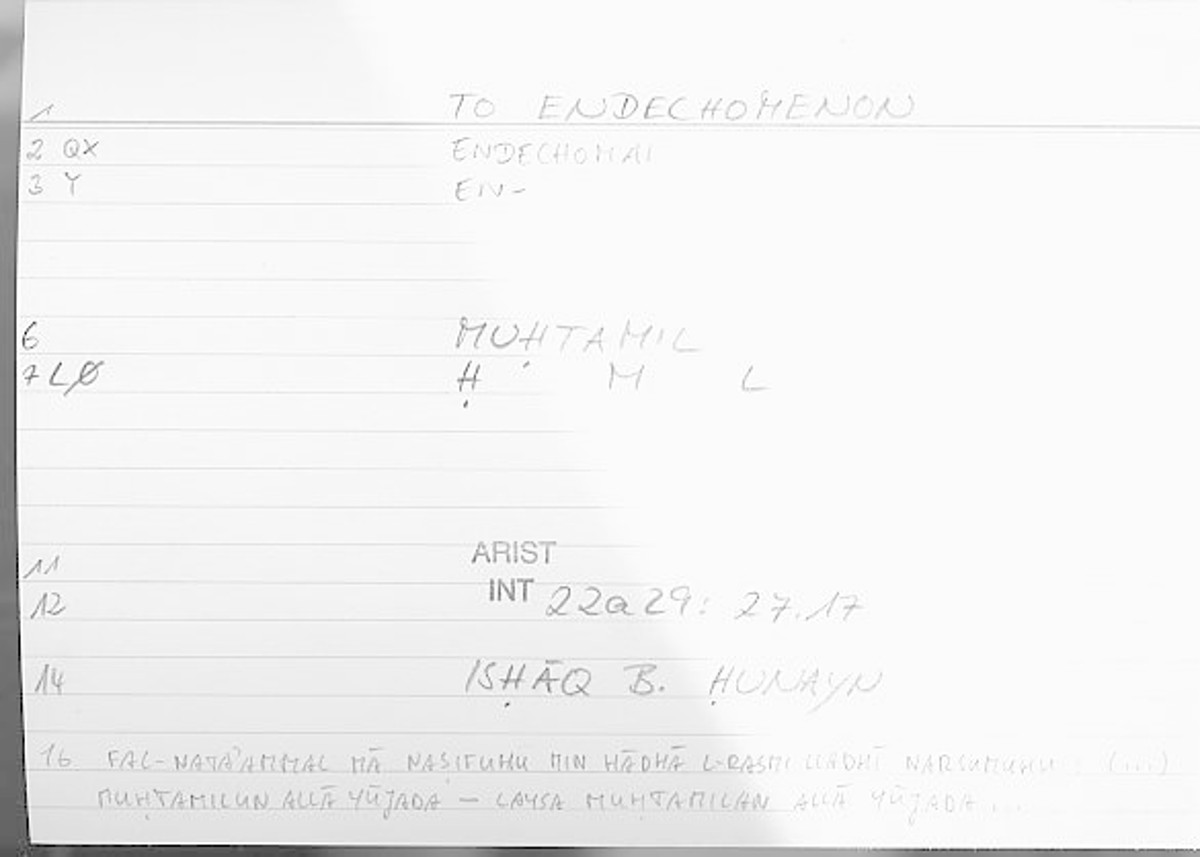 1 TO ENDECHOMENON
2 QX ENDECHOMAI
3 Y EN-
6 MUḤTAMIL
7 LØ Ḥ M L
11 ARIST
12 INT 22a29: 27.17
14 ISḤĀQ B. ḤUNAYN
16 FAL-NATA'AMMAL MĀ NAṢIFUHU MIN HĀDHĀ L-RASMI LLADHĪ NARSUMUHU : (...)
MUḤTAMILUN ALLĀ YŪJADA – LAYSA MUḤTAMILAN ALLĀ YŪJADA...